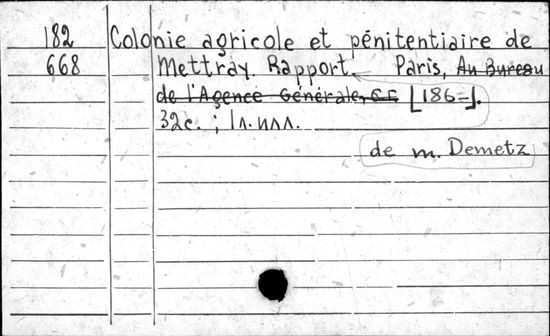 182 Colonie agricole et pénitentiaire de
668 Mettray. Rapport. Paris, Au Bureau
de l'Agence Générale, [186-].
32c. ; 1л. илл.
de m. Demetz